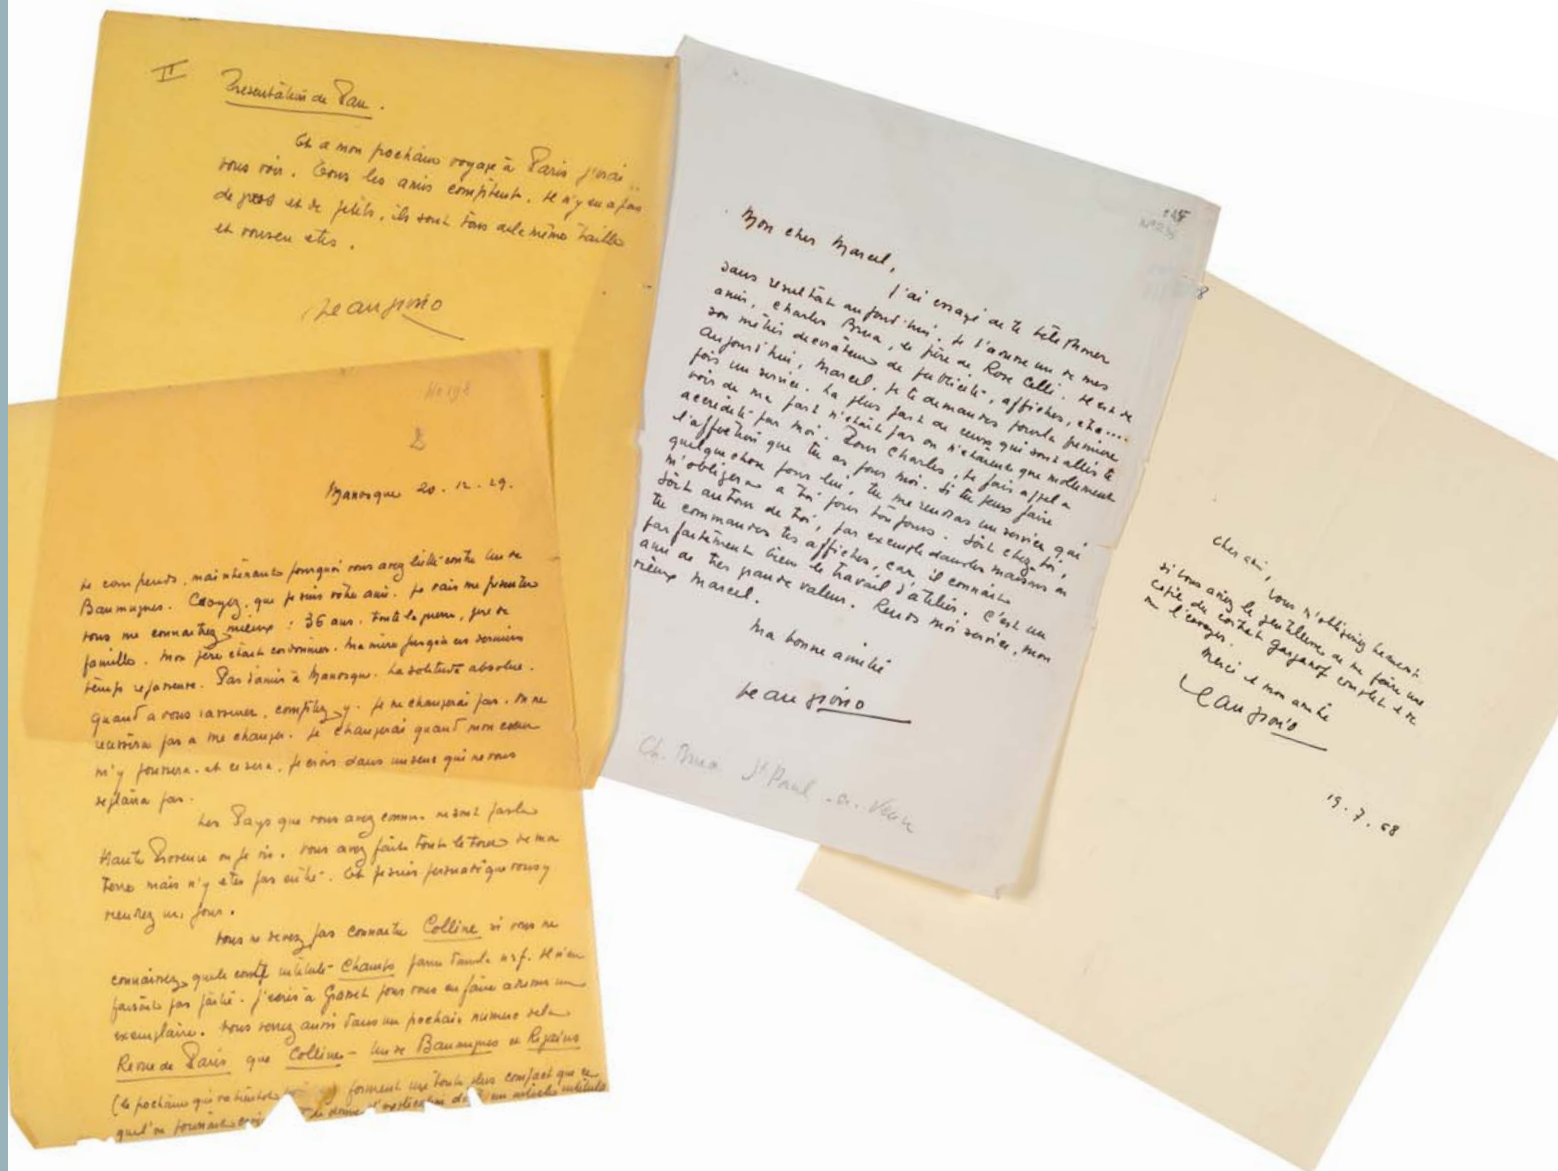 II
Présentation de Pan.
Et a mon pochain voyage à Paris j'irai
vous voir. Tous les amis comptent. Il n'y en a pas
de gros et de petits, ils sont tous de la même taille
et vous en etes.
Jean Giono
2
Manosque 20.12.29.
Je comprends, maintenant pourquoi vous avez lutté contre Un de
Baumugnes. Croyez, que je suis votre ami. Je vais me présenter
vous me connaitrez mieux : 36 ans. Toute la guerre, père de
famille. Mon père était cordonnier. Ma mère jusqu'à ces derniers
temps repasseuse. Pas d'amis à Manosque. La solitude absolue.
Quant a vous rassurer, comptez y. Je ne changerai pas. On ne
réussira pas a me changer. Je changerai quand mon cœur
m'y poussera. et ce sera, je crois dans un sens qui ne vous
déplaira pas.
Les Pays que vous avez connus ne sont pas la
Haute Provence ou je vis. Vous avez fait tout le tour de ma
Terre mais n'y etes pas entré. Et je suis persuadé que vous y
viendrez un jour.
Vous ne devez pas connaitre Colline si vous ne
connaissez que le conte intitulé Champs paru dans la nrf. Il n'en
faisait pas partie. J'écris à Grasset pour vous en faire adresser un
exemplaire. Vous verrez aussi dans un pochain numero de la
Revue de Paris que Colline - Un de Baumugnes et Regains
(le pochain qui forment un tout plus compact que ce
que l'on pourrait un article intitulé
Mon cher Marcel,
J'ai essayé de te téléphoner
sans résultat aujourd'hui. Je t'adresse un de mes
amis, Charles Brua, le père de Rose Celli. Il est de
son métier decorateur de publicité, affiches, etc....
Aujourd'hui, Marcel, je te demande pour la première
fois un service. La plus part de ceux qui sont allés te
voir de ma part n'étaient pas ou n'étaient que mollement
accrédités par moi. Pour Charles, je fais appel a
l'affection que tu as pour moi. Si tu peux faire
quelque chose pour lui, tu me rendras un service qui
m'obligera a toi pour toujours. Soit chez toi,
soit autour de toi, par exemple dans les maisons ou
tu commandes tes affiches, car il connait
parfaitement bien le travail d'atelier. C'est un
ami de tres grande valeur. Rends moi service, mon
vieux Marcel.
Ma bonne amitié
Jean Giono
Ch. Brua St Paul - de - Vence
Cher ami, vous m'obligeriez beaucoup
si vous aviez la gentillesse de me faire une
copie du contrat Gaganof complet et de
me l'envoyer.
Merci et mon amitié
Jean Giono
19.7.68